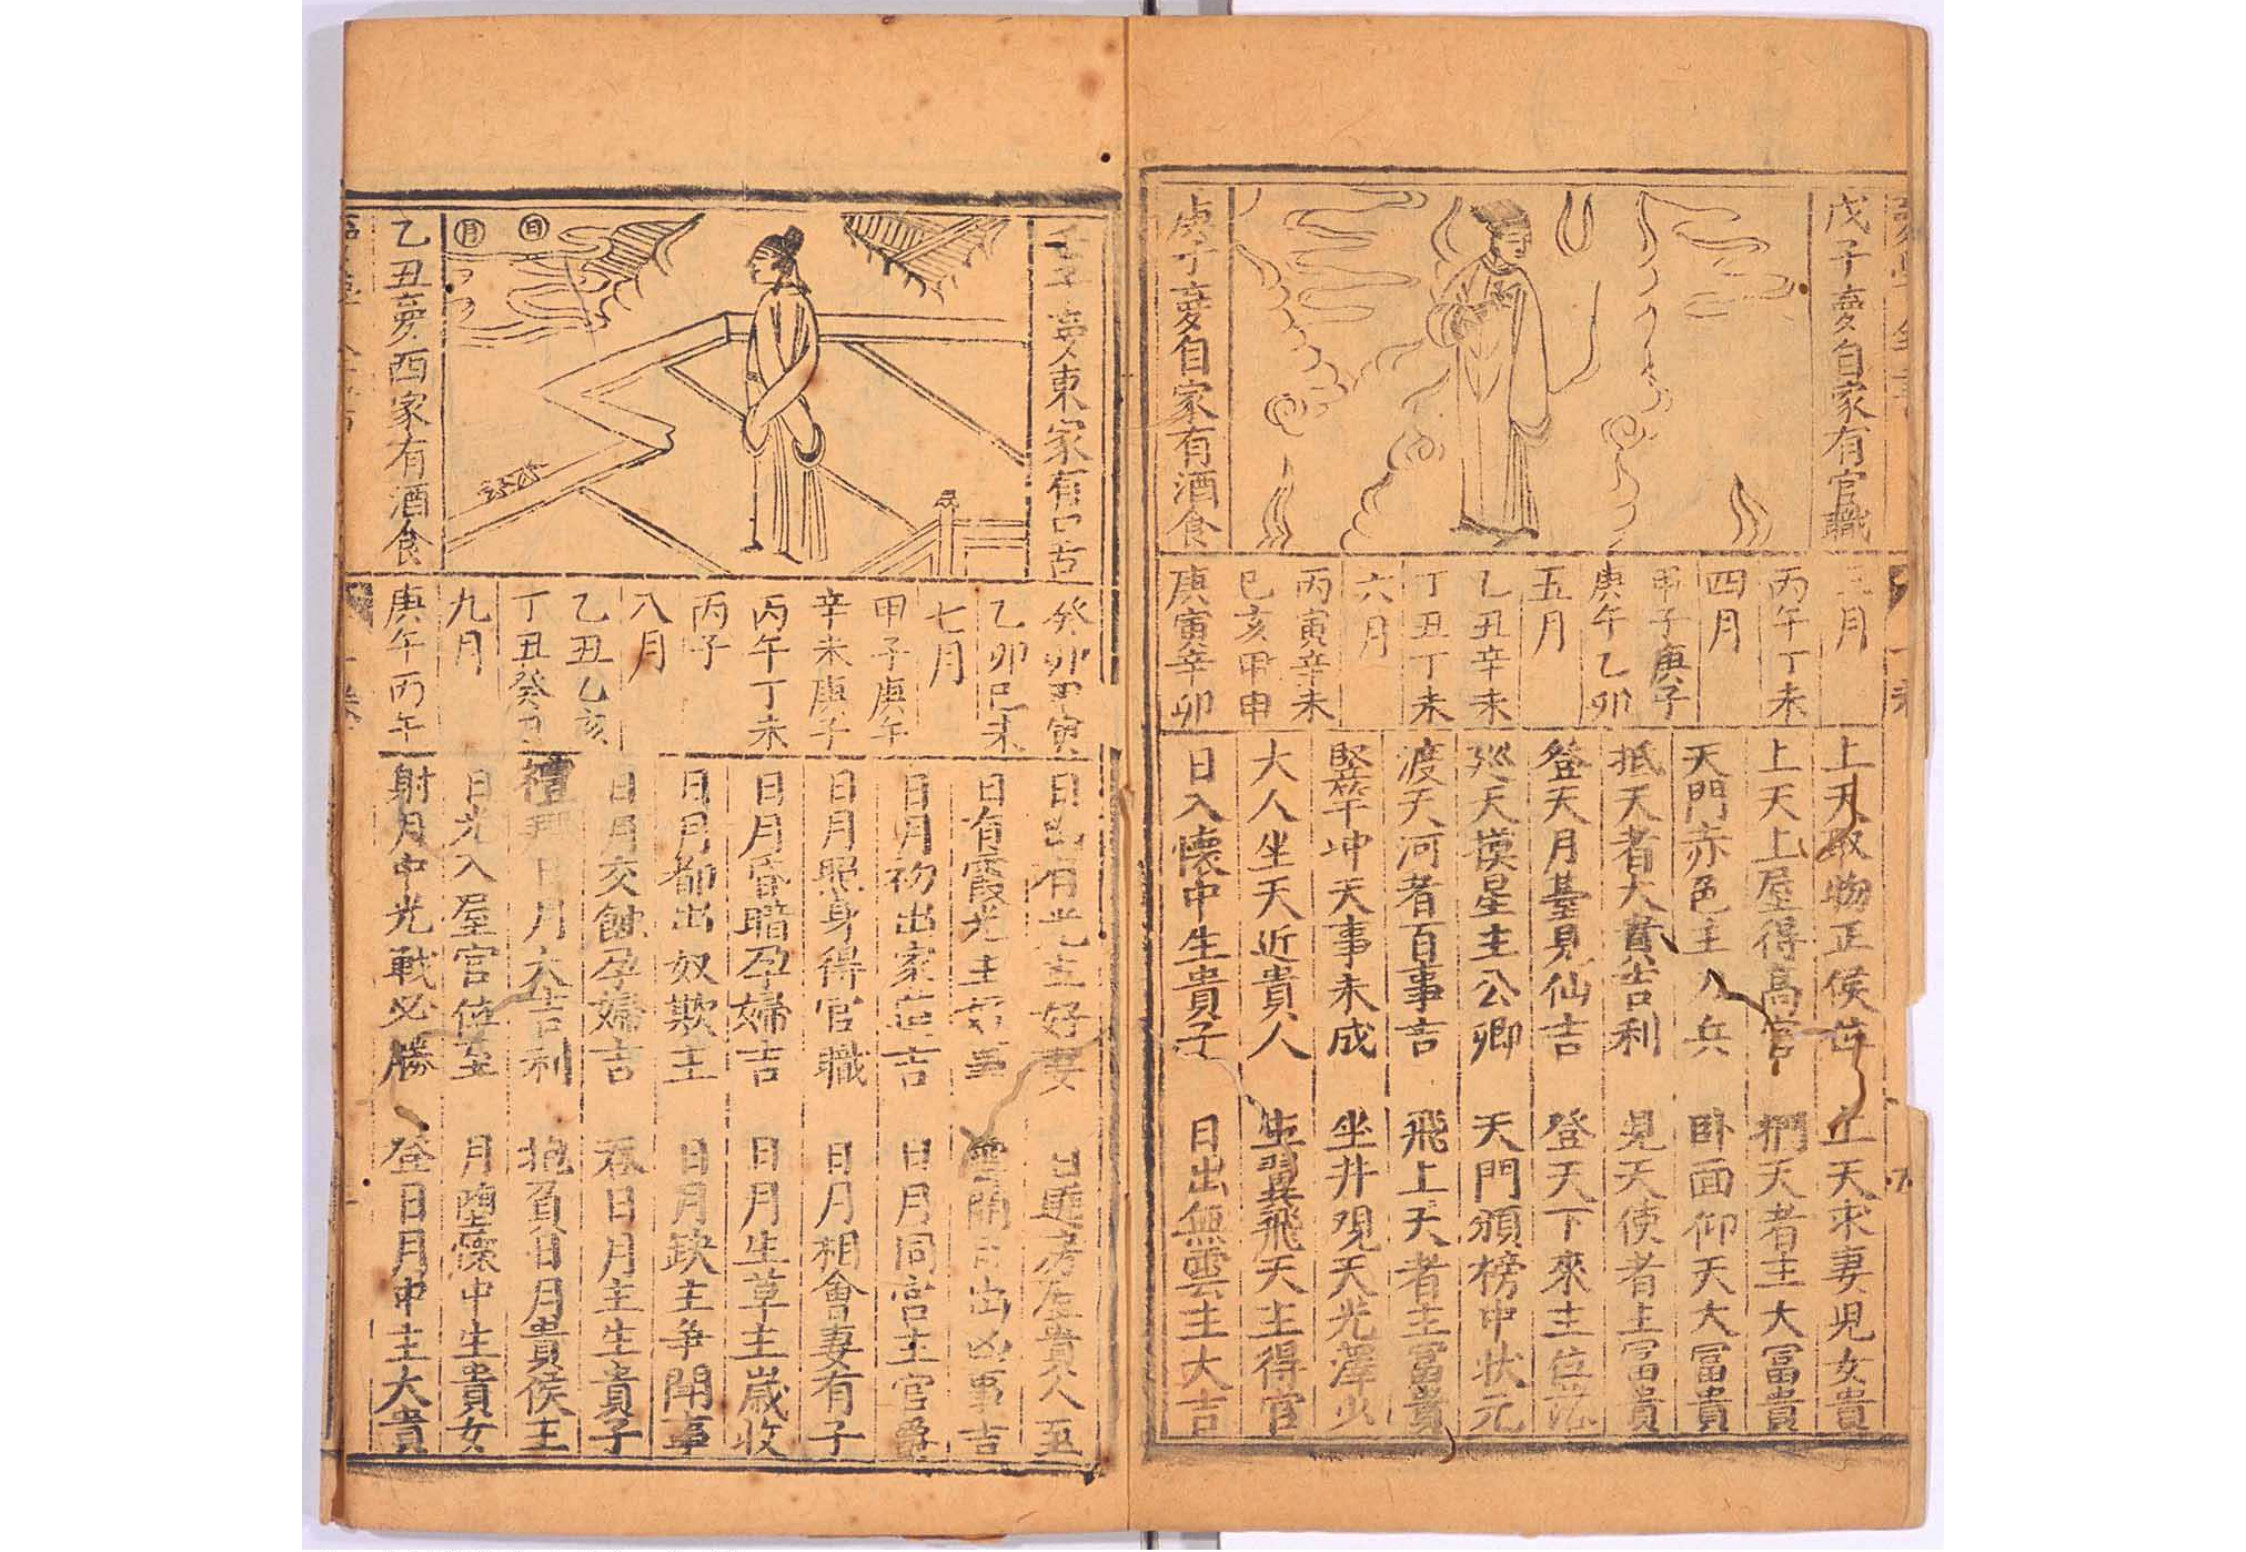 戊子夢自家有官職
庚子夢自家有酒食
三月
丙午丁未
四月
甲子庚子
庚午乙卯
五月
乙丑辛未
丁丑丁未
六月
丙寅辛未
己亥甲申
庚寅辛卯
上天取物正侯位
上天上屋得高官
天門赤色主八兵
抵天者大貴吉利
登天月臺見仙吉
巡天摸星主公卿
渡天河者百事吉
竪竿冲天事未成
大人坐天近貴人
日入懷中生貴子
上天求妻兒女貴
捫天者主大冨貴
卧面仰天大冨貴
見天使者主冨貴
登天下來主位
天門頒榜中状元
飛上天者主冨貴
坐井观天光澤少
生翼飛天主得官
日出無雲主大吉
壬子夢東家有口舌
乙丑夢西家有酒食
癸卯甲寅
乙卯巳未
七月
甲子庚午
辛未庚子
丙午丁未
丙子
八月
乙丑乙亥
丁丑癸丑
九月
庚午丙午
日出有光主好妻
日有霞光主好事
日月初出家莊吉
日月照身得官職
日月昏暗孕婦吉
日月都出奴欺主
日月交蝕孕婦吉
禮拜日月大吉利
日光入屋官位至
射月中光戰必勝
日進房屋貴人至
雲開日出凶事吉
日月同宫主官爵
日月相會妻有子
日月生草主歲收
日月缺主争閗事
吞日月主生貴子
抱負日月貴侯王
月墮懷中生貴女
登日月中主大貴